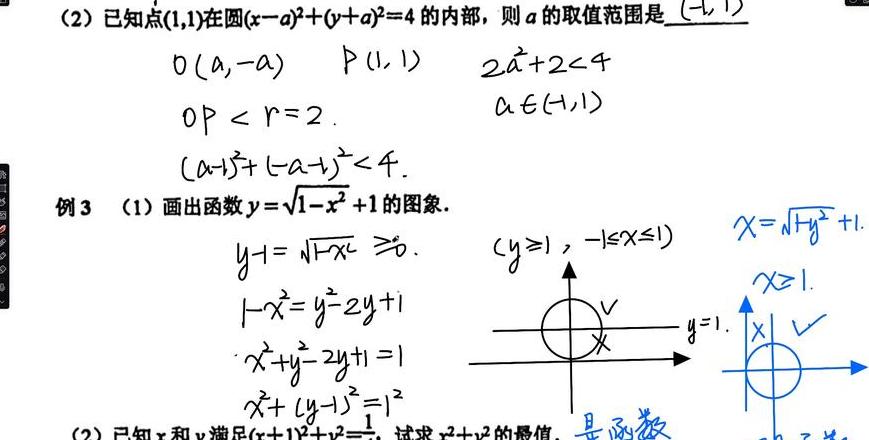 （2）已知点(1,1)在圆(x－a)²+(y+a)²=4 的内部，则 a 的取值范围是 (-1, 1)
O(a,-a) P(1,1) 2a²+2<4
OP < r=2. a∈(-1,1)
(a-1)²+(-a-1)²<4.
例3 （1）画出函数 y=√(1-x²) +1 的图象.
y-1=√(1-x²) ≥0. (y≥1, -1≤x≤1) x=√(1-y²) +1.
1-x²=y²-2y+1 x≥1.
x²+y²-2y+1=1 y=1.
x²+(y-1)²=1²
（2）已知 x 和 y 满足(x+1)²+y²=1, 试求 x²+y² 的最值. 是函数